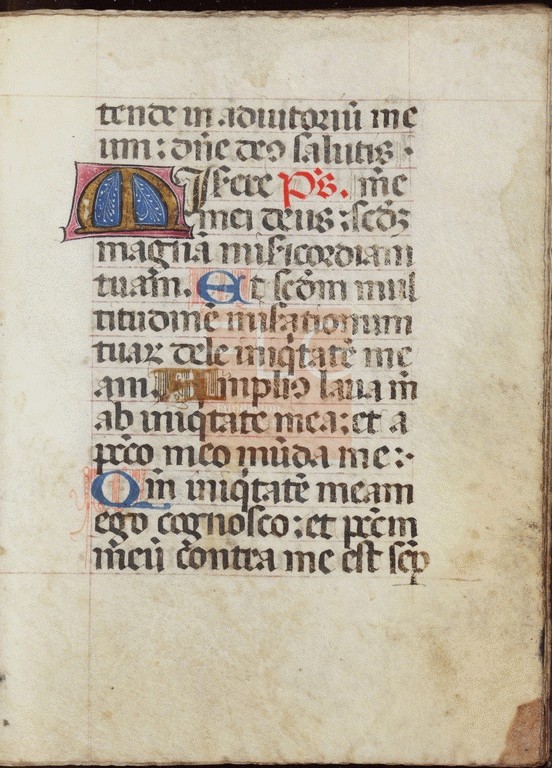 tende in adiutoriū me
um : dn̄e deꝯ salutis ·
Miserere p̄s. mē
mei deus : scd̄ꝫ
magnā misericordiam
tuam. Et scdm̄ mul
titudinē miẜationum
tuaꝝ dele iniq̇tatē me
am. Ampliꝯ laua m̄
ab iniq̇tate mea : et a
pccō meo mūda me :·
Qm̄ iniq̇tatē meam
ego cognosco : et pccm̄
meū contra me est sēp